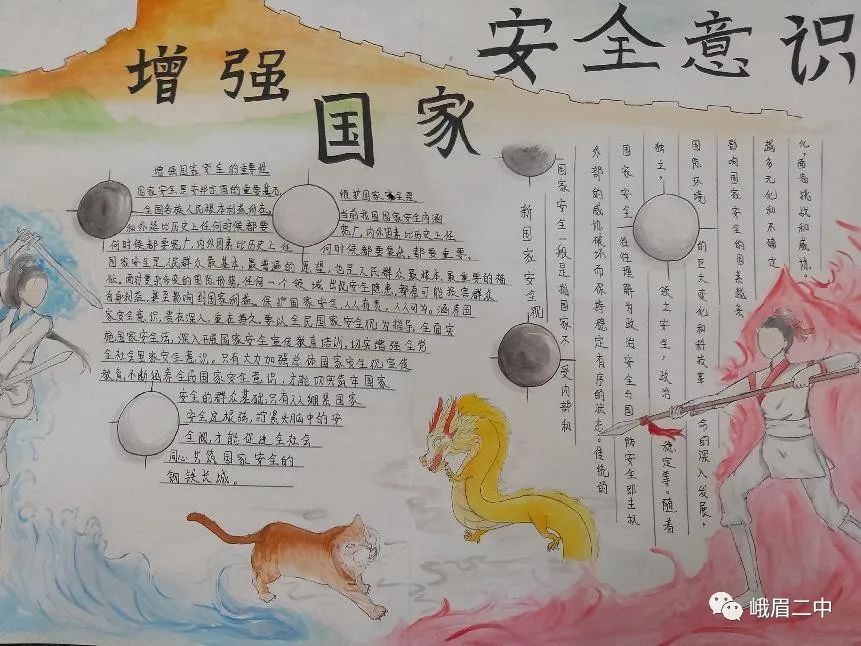 增强
国家
安全意识
增强国家安全的重要性
国家安全是安邦定国的重要基石
全国各族人民根本利益所在。
和外延比历史上任何时候都要
何时候都要宽广,内外因素比历史上任
维护国家安全是
当前我国国家安全内涵
宽广,内外因素比历史上任
何时候都要复杂,都要重要。
国家安全是人民群众最基本、最普遍的愿望,也是人民群众最根本、最重要的福
祉。面对复杂多变的国际形势,任何一个领域出现安全隐患,都有可能损害群众
自身利益,甚至影响到国家利益。保护国家安全,人人有责,人人可为。涵养国
家安全意识,贵在深入,重在持久。要以全民国家安全观为指导,全面实
施国家安全法,深入开展国家安全宣传教育培训,切实增强全党
全社会国家安全意识。只有大力加强总体国家安全观宣传
教育,不断涵养全民国家安全意识,才能切实筑牢国家
安全的群众基础,只有人人绷紧国家
安全这根弦,拧紧头脑中的安
全阀,才能促进全社会
同心共筑国家安全的
钢铁长城。
新国家安全观
国家安全一般是指国家不受内部和
外部的威胁破坏而保持稳定有序的状态。传统的
国家安全往往理解为政治安全与国防安全即主权
独立,领土安全,政治稳定等。随着
国际环境的巨大变化和科技革命的深入发展,
影响国家安全的因素越来
越多元化和不确定
化,面临挑战和威胁。
峨眉二中